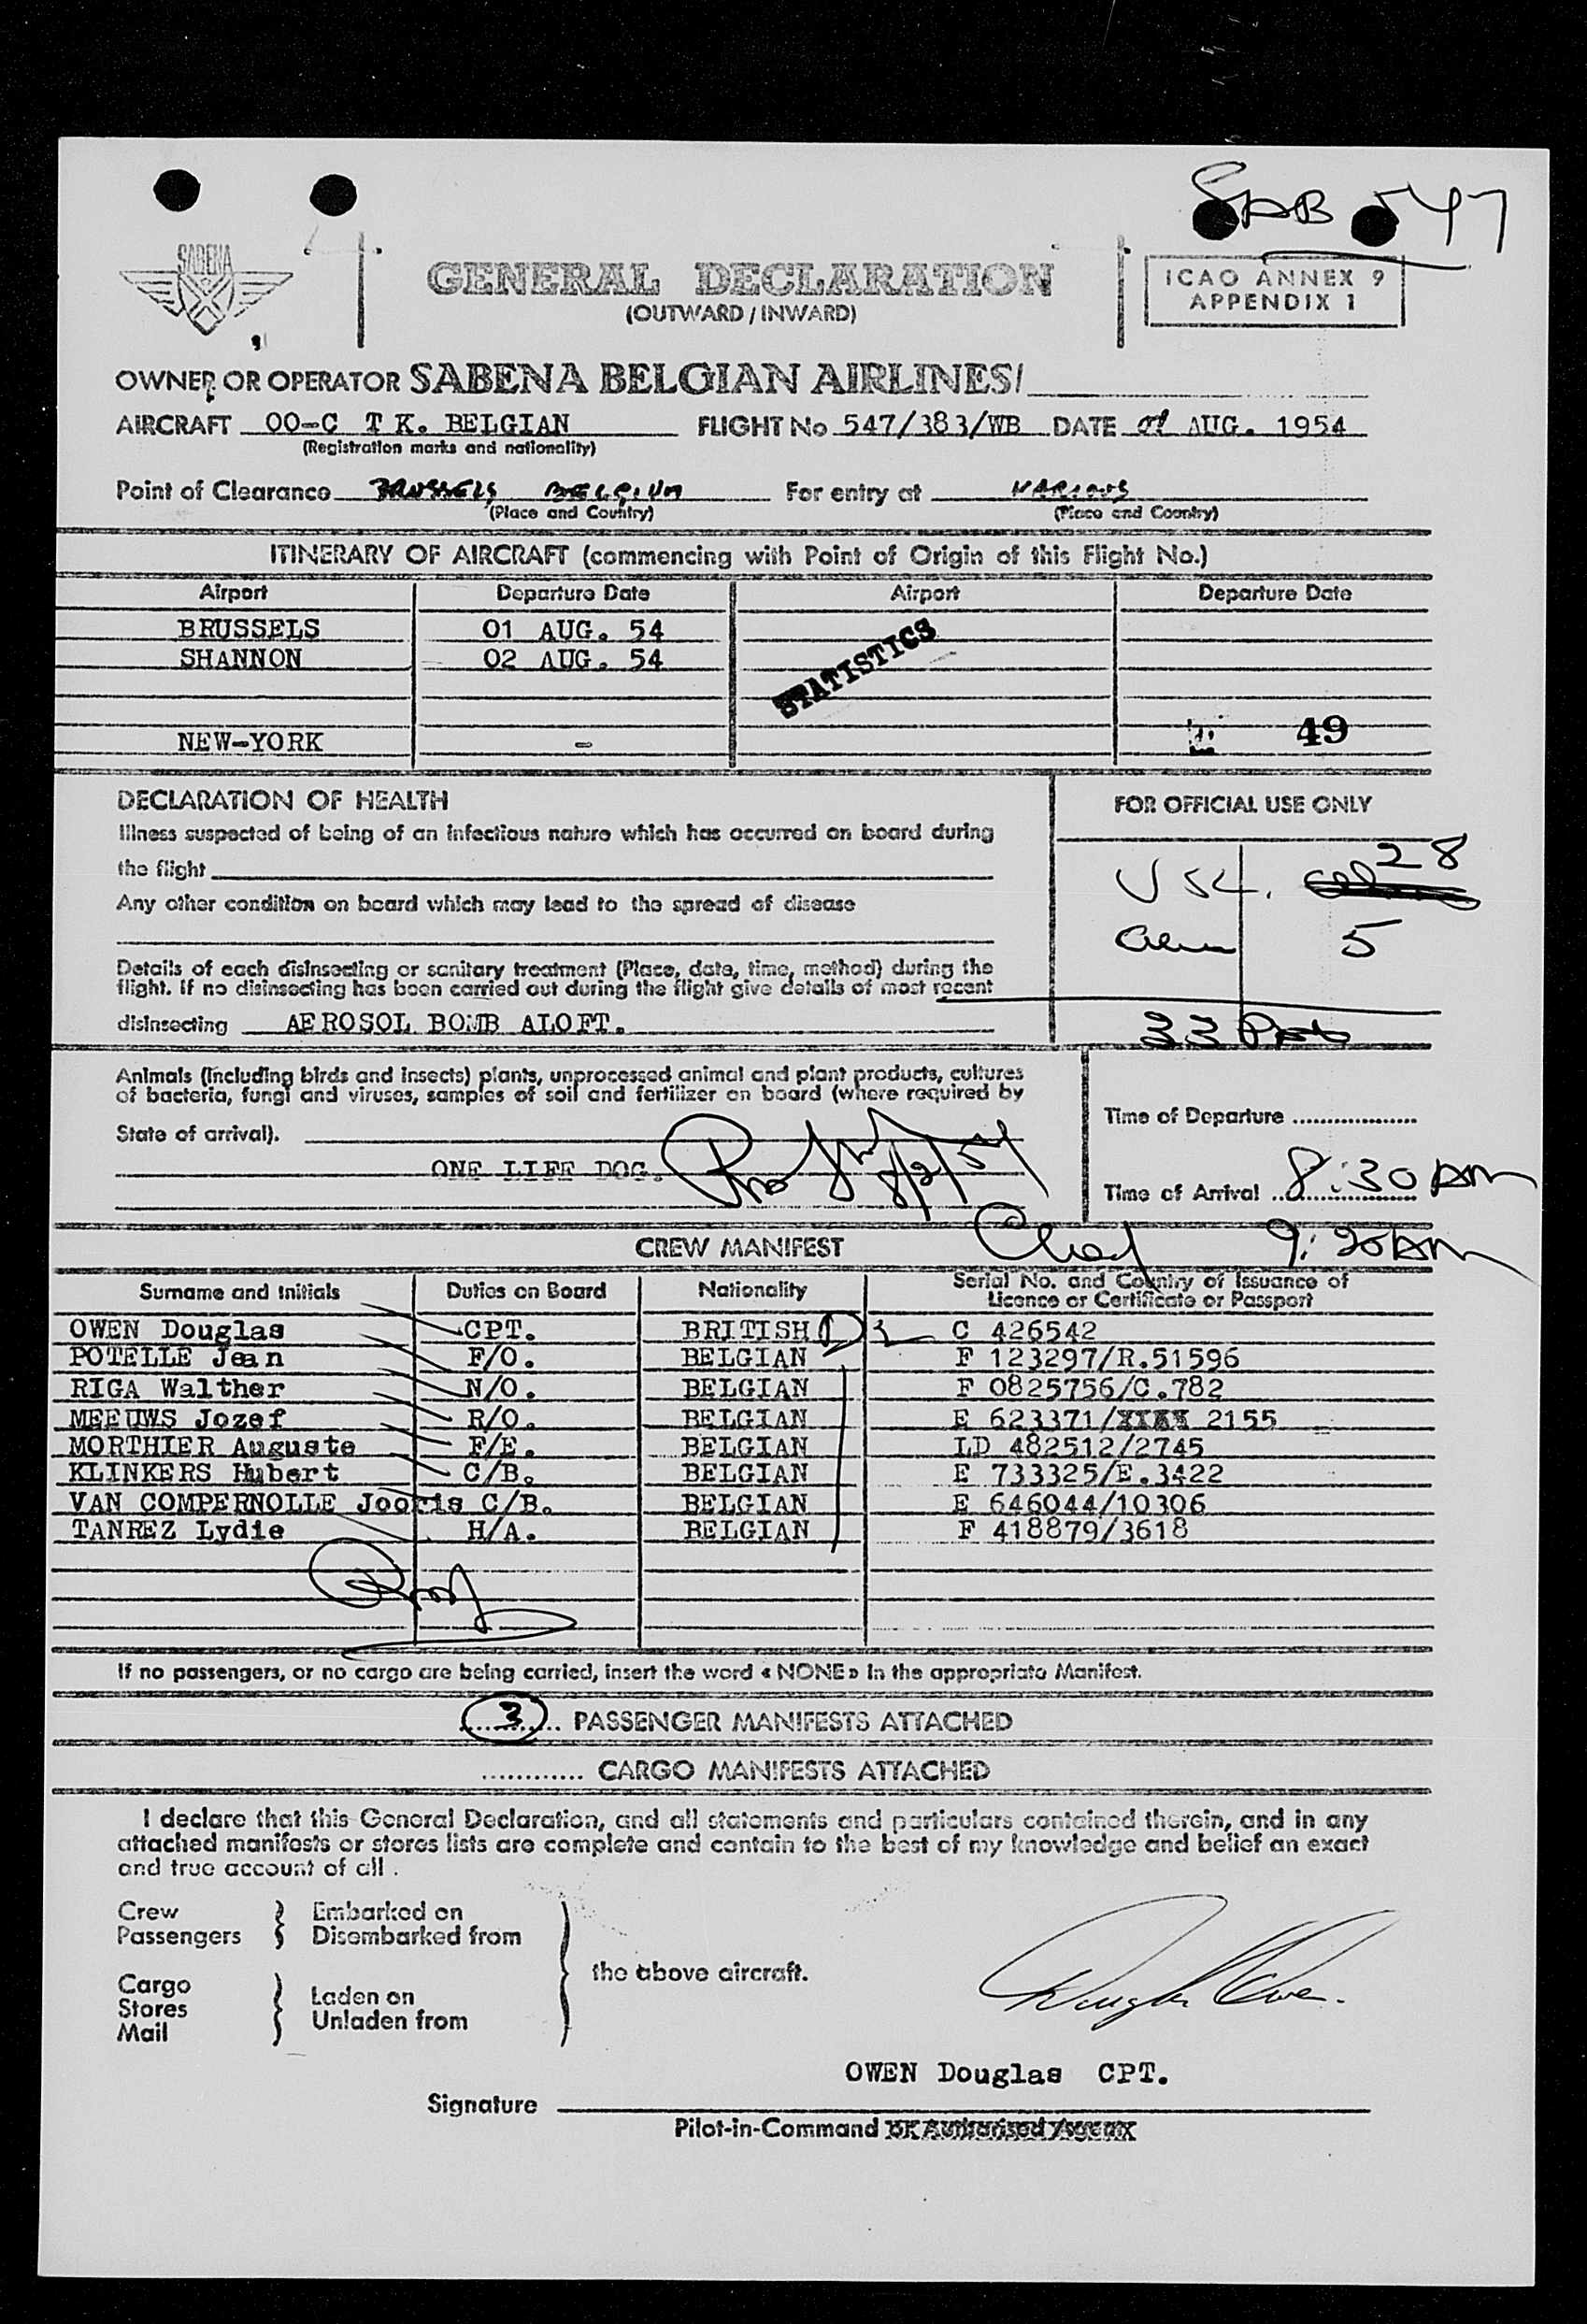 SAB 547
SABENA
GENERAL DECLARATION
(OUTWARD / INWARD)
ICAO ANNEX 9
APPENDIX 1
OWNER OR OPERATOR SABENA BELGIAN AIRLINES/
AIRCRAFT OO-C T K. BELGIAN FLIGHT No 547/383/WB DATE 01 AUG. 1954
(Registration marks and nationality)
Point of Clearance BRUSSELS BELGIUM For entry at VARIOUS
(Place and Country) (Place and Country)
ITINERARY OF AIRCRAFT (commencing with Point of Origin of this Flight No.)
Airport Departure Date Airport Departure Date
BRUSSELS 01 AUG. 54
SHANNON 02 AUG. 54
STATISTICS
49
NEW-YORK -
DECLARATION OF HEALTH
FOR OFFICIAL USE ONLY
Illness suspected of being of an infectious nature which has occurred on board during
the flight
28
Any other condition on board which may lead to the spread of disease
5
Details of each disinsecting or sanitary treatment (Place, date, time, method) during the
flight. If no disinsecting has been carried out during the flight give details of most recent
disinsecting AEROSOL BOMB ALOFT.
33
Animals (including birds and insects) plants, unprocessed animal and plant products, cultures
of bacteria, fungi and viruses, samples of soil and fertilizer on board (where required by
State of arrival).
Time of Departure
ONE LIFE DOG. 8/2/54
Time of Arrival 8:30 AM
CREW MANIFEST
9:20 AM
Surname and Initials Duties on Board Nationality Serial No. and Country of Issuance of
Licence or Certificate or Passport
OWEN Douglas CPT. BRITISH C 426542
POTELLE Jean F/O. BELGIAN F 123297/R.51596
RIGA Walther N/O. BELGIAN F 0825756/C.782
MEEUWS Jozef R/O. BELGIAN E 623371/XXXX 2155
MORTHIER Auguste F/E. BELGIAN LD 482512/2745
KLINKERS Hubert C/B. BELGIAN E 733325/E.3422
VAN COMPERNOLLE Jooris C/B. BELGIAN E 646044/10306
TANREZ Lydie H/A. BELGIAN F 418879/3618
If no passengers, or no cargo are being carried, insert the word « NONE » in the appropriate Manifest.
3 PASSENGER MANIFESTS ATTACHED
............ CARGO MANIFESTS ATTACHED
I declare that this General Declaration, and all statements and particulars contained therein, and in any
attached manifests or stores lists are complete and contain to the best of my knowledge and belief an exact
and true account of all .
Crew Embarked on
Passengers Disembarked from
the above aircraft.
Cargo
Stores Laden on
Mail Unladen from
Douglas Owen.
OWEN Douglas CPT.
Signature
Pilot-in-Command or Authorised Agent